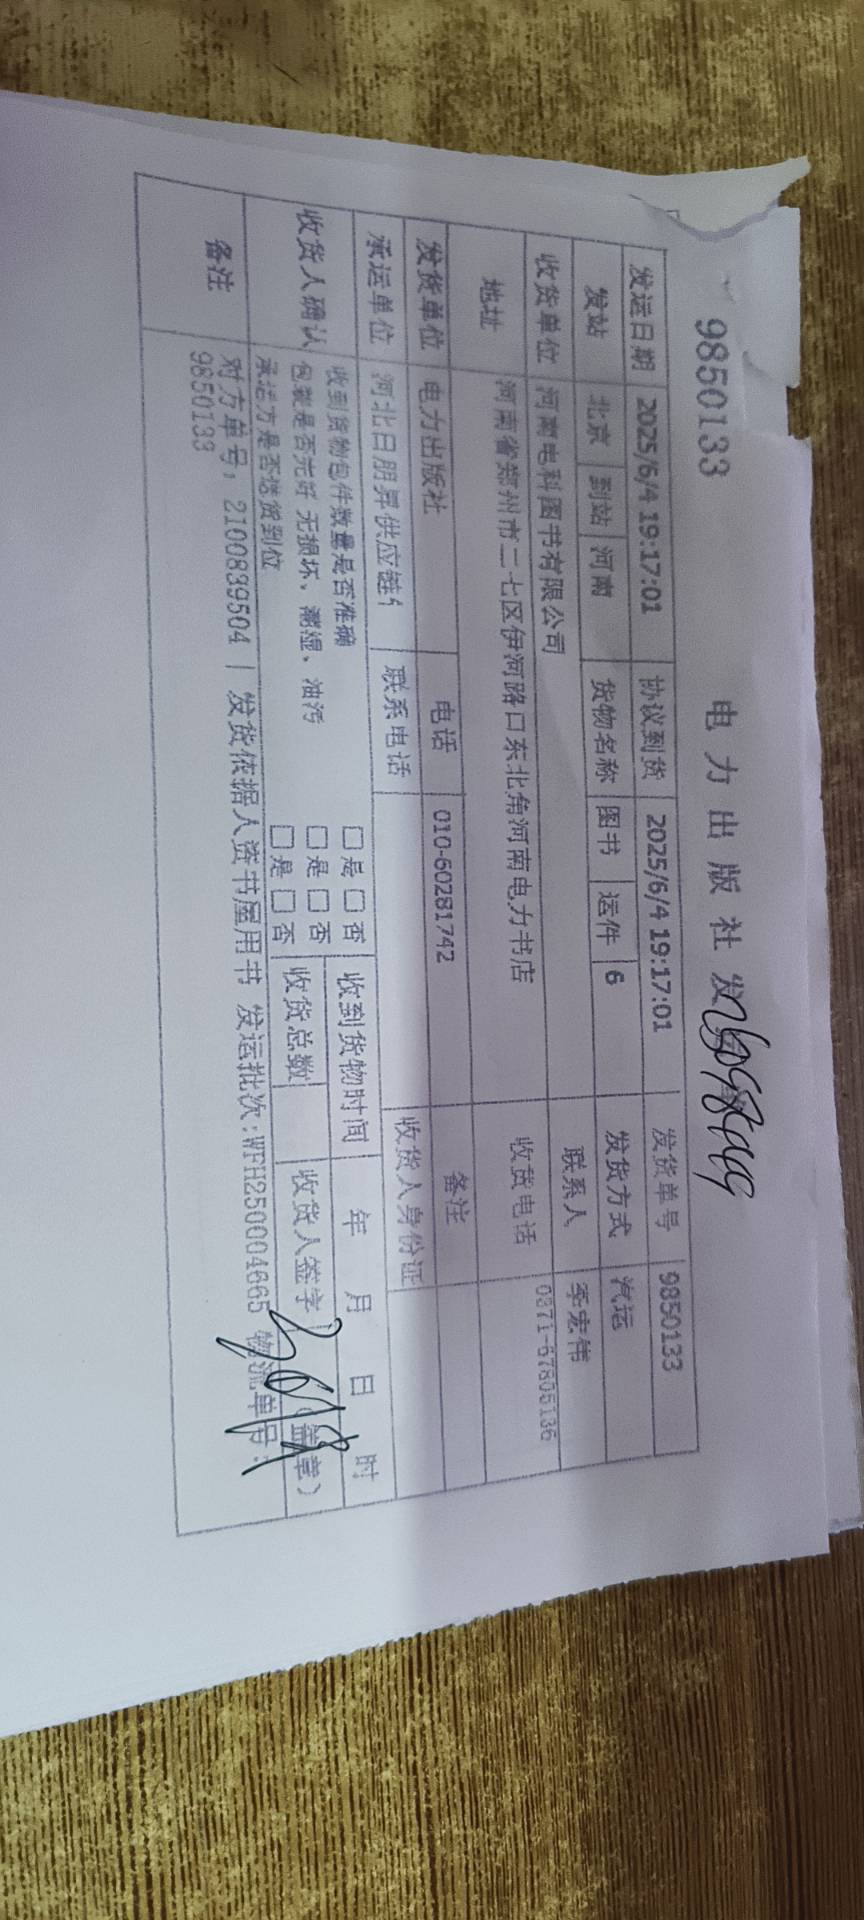 9850133 电力出版社发
发运日期 2025/6/4 19:17:01 协议到货 2025/6/4 19:17:01 发货单号 9850133
发站 北京 到站 河南 货物名称 图书 运件 6 发货方式 汽运
收货单位 河南电科图书有限公司 联系人 李宏伟
地址 河南省郑州市二七区伊河路口东北角河南电力书店 收货电话 0371-67805136
发货单位 电力出版社 电话 010-60281742 备注
承运单位 河北日朋昇供应链 联系电话 收货人身份证
收货人确认 收到货物包件数量是否准确 □是 □否 收到货物时间 年 月 日 时
包装是否完好 无损坏、潮湿、油污 □是 □否 收货总数 收货人签字 (盖章)
承运方是否送货到位 □是 □否
备注 对方单号: 2100839504 | 发货依据人资书屋用书 发运批次:WFH250004665 物流单号:
9850133